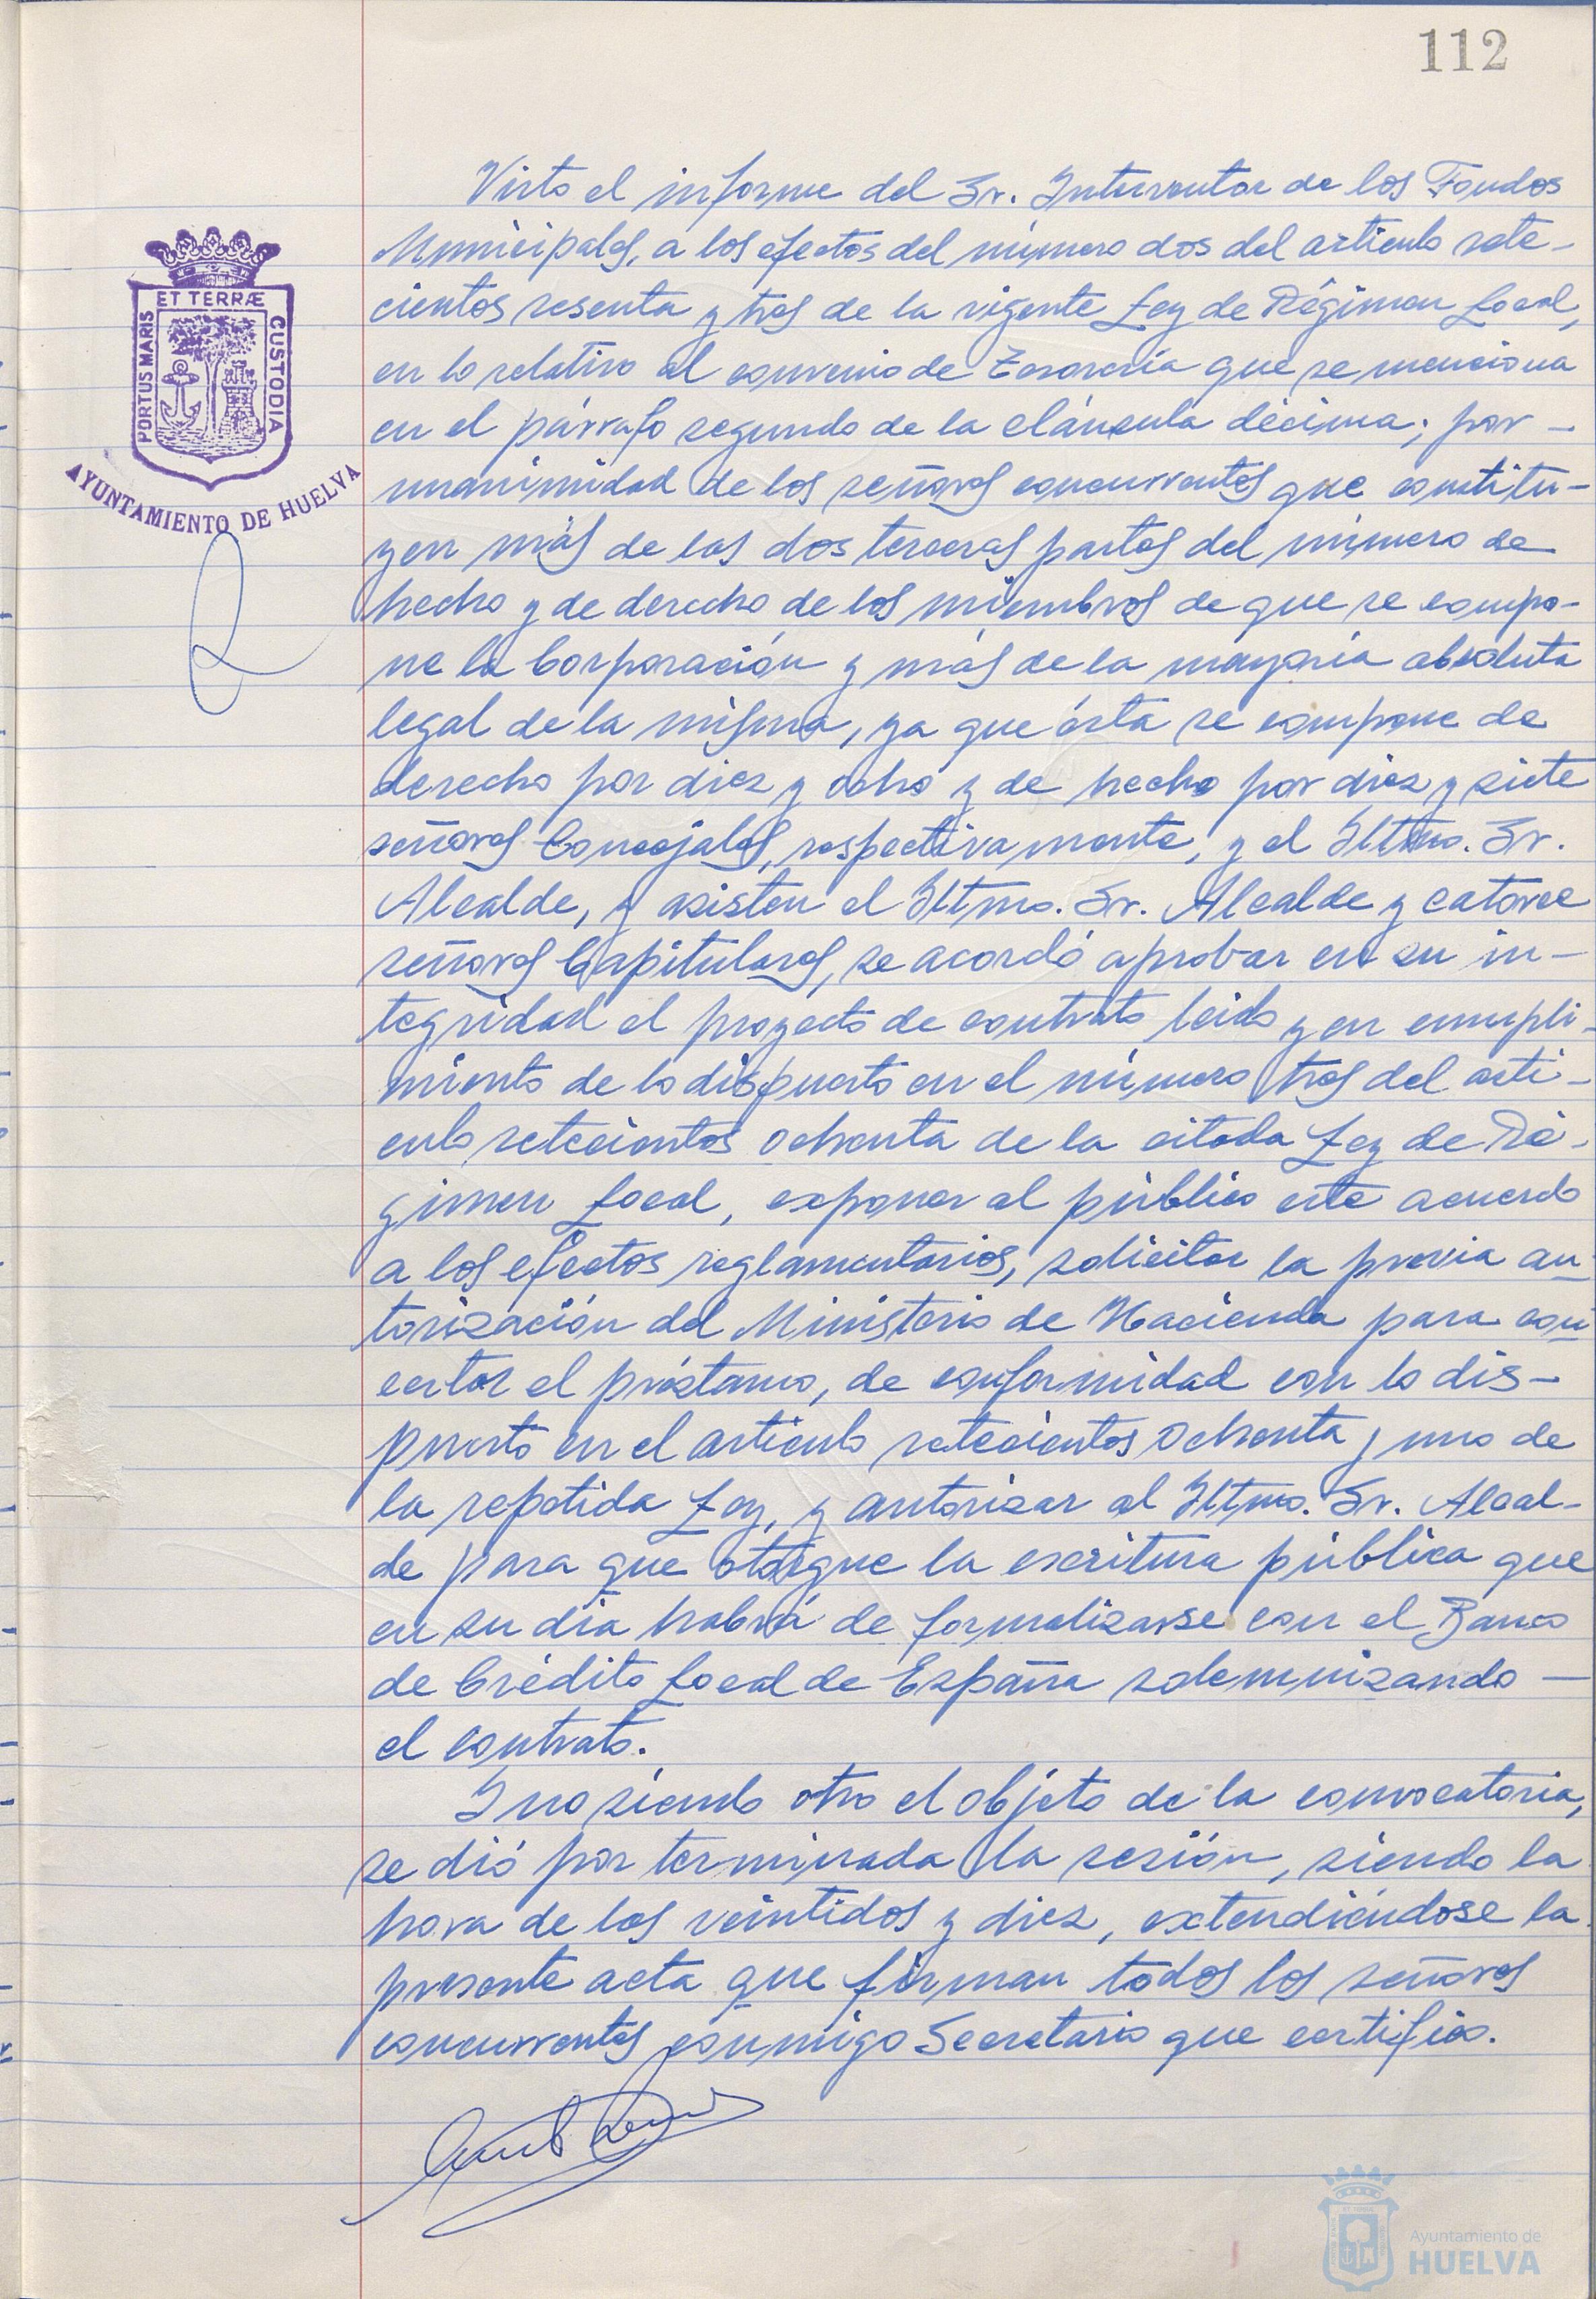 112
Visto el informe del Sr. Interventor de los Fondos
Municipales, a los efectos del número dos del artículo sete-
cientos sesenta y tres de la vigente Ley de Régimen Local,
en lo relativo al convenio de Tesorería que se menciona
en el párrafo segundo de la cláusula décima; por -
unanimidad de los señores concurrentes que constitu-
yen más de las dos terceras partes del número de
hecho y de derecho de los miembros de que se compo-
ne la Corporación y más de la mayoría absoluta
legal de la misma, ya que ésta se compone de
derecho por diez y ocho y de hecho por diez y siete
señores Concejales, respectivamente, y el Iltmo. Sr.
Alcalde, y asisten el Iltmo. Sr. Alcalde y catorce
señores Capitulares, se acordó aprobar en su in-
tegridad el proyecto de contrato leido y en cumpli-
miento de lo dispuesto en el número tres del artí-
culo setecientos ochenta de la citada Ley de Ré-
gimen Local, exponer al público este acuerdo
a los efectos reglamentarios, solicitar la previa au
torización del Ministerio de Hacienda para con
certar el préstamo, de conformidad con lo dis-
puesto en el artículo setecientos ochenta y uno de
la repetida Ley, y autorizar al Iltmo. Sr. Alcal-
de para que otorgue la escritura pública que
en su día habrá de formalizarse con el Banco
de Crédito Local de España solemnizando -
el contrato.
Y no siendo otro el objeto de la convocatoria,
se dió por terminada la sesión, siendo la
hora de las veintidos y diez, extendiéndose la
presente acta que firman todos los señores
concurrentes conmigo Secretario que certifico.
PORTUS MARIS
ET TERRÆ
CUSTODIA
AYUNTAMIENTO DE HUELVA
Ayuntamiento de
HUELVA